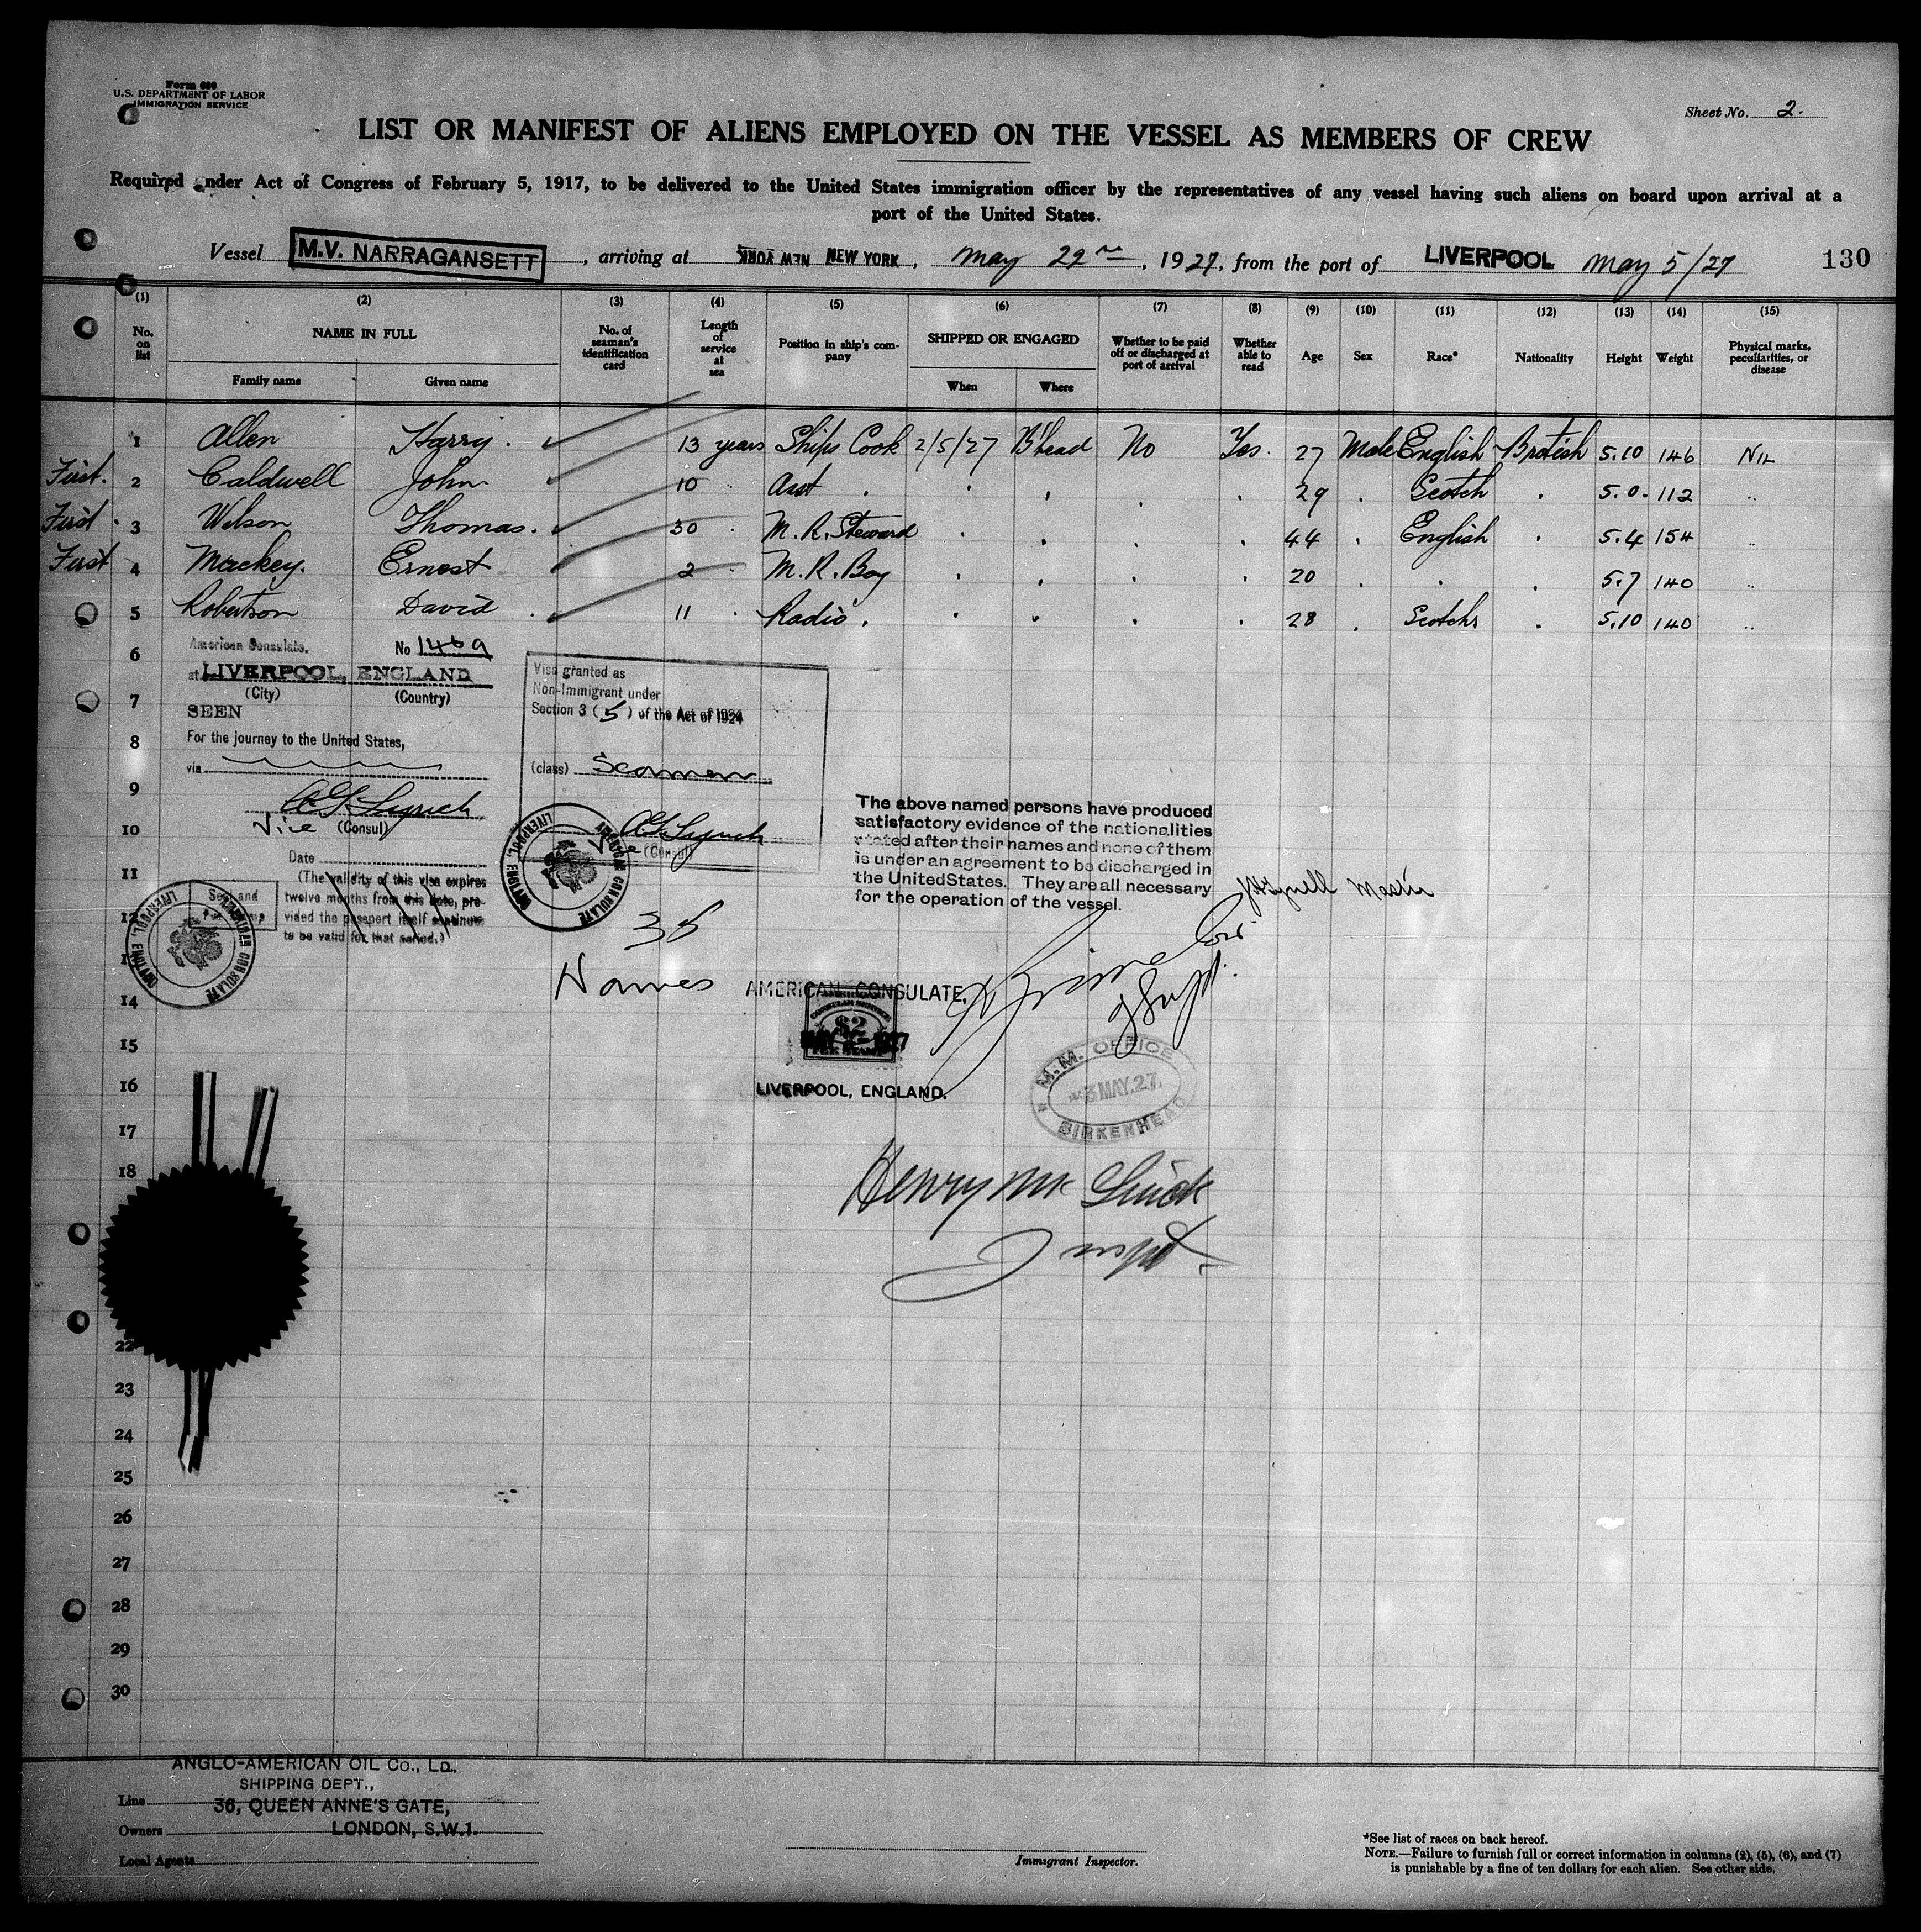 Form 680
U.S. DEPARTMENT OF LABOR
IMMIGRATION SERVICE
Sheet No. 2.
LIST OR MANIFEST OF ALIENS EMPLOYED ON THE VESSEL AS MEMBERS OF CREW
Required under Act of Congress of February 5, 1917, to be delivered to the United States immigration officer by the representatives of any vessel having such aliens on board upon arrival at a
port of the United States.
Vessel M.V. NARRAGANSETT, arriving at NEW YORK NEW YORK, May 22nd, 1927, from the port of LIVERPOOL May 5/27 130
(1) (2) (3) (4) (5) (6) (7) (8) (9) (10) (11) (12) (13) (14) (15)
No. on list NAME IN FULL No. of seaman's identification card Length of service at sea Position in ship's company SHIPPED OR ENGAGED Whether to be paid off or discharged at port of arrival Whether able to read Age Sex Race* Nationality Height Weight Physical marks, peculiarities, or disease
Family name Given name When Where
1 Allen Harry. 13 years Ships Cook 2/5/27 B'head No Yes. 27 Male English British 5.10 146 Nil
First. 2 Caldwell John 10 " Asst . . . . . 29 . Scotch . 5.0. 112 "
First. 3 Wilson Thomas. 30 . M.R. Steward . . . . 44 . English . 5.4 154 "
First 4 Mackey. Ernest 2 . M.R. Boy . . . . 20 . . . 5.7 140 "
5 Robertson David . 11 . Radio. . . . . 28 . Scotch . 5.10 140 "
6
7
8
9
10
11
12
14
15
16
17
18
22
23
24
25
26
27
28
29
30
American Consulate. No 1469
at LIVERPOOL, ENGLAND
(City) (Country)
SEEN
For the journey to the United States,
via
A.G. Lynch
Vice (Consul)
Date
(The validity of this visa expires
twelve months from this date, pro-
vided the passport itself continues
to be valid for that period.)
Seal and
Stamp
AMERICAN CONSULATE
LIVERPOOL, ENGLAND
Visa granted as
Non-Immigrant under
Section 3 (5) of the Act of 1924
(class) Seamen
A.G. Lynch
Vice (Consul)
AMERICAN CONSULATE
LIVERPOOL, ENGLAND
35
Names
The above named persons have produced
satisfactory evidence of the nationalities
stated after their names and none of them
is under an agreement to be discharged in
the United States. They are all necessary
for the operation of the vessel.
Master
Supt.
AMERICAN CONSULATE,
$2
FEE STAMP
LIVERPOOL, ENGLAND.
M.M. OFFICE
3 MAY.27
BIRKENHEAD
Henry Mc
Inspt.
ANGLO-AMERICAN OIL Co., LD.,
SHIPPING DEPT.,
Line 36, QUEEN ANNE'S GATE,
Owners LONDON, S.W.1.
Local Agents
Immigrant Inspector.
*See list of races on back hereof.
NOTE.—Failure to furnish full or correct information in columns (2), (5), (6), and (7)
is punishable by a fine of ten dollars for each alien. See other side.